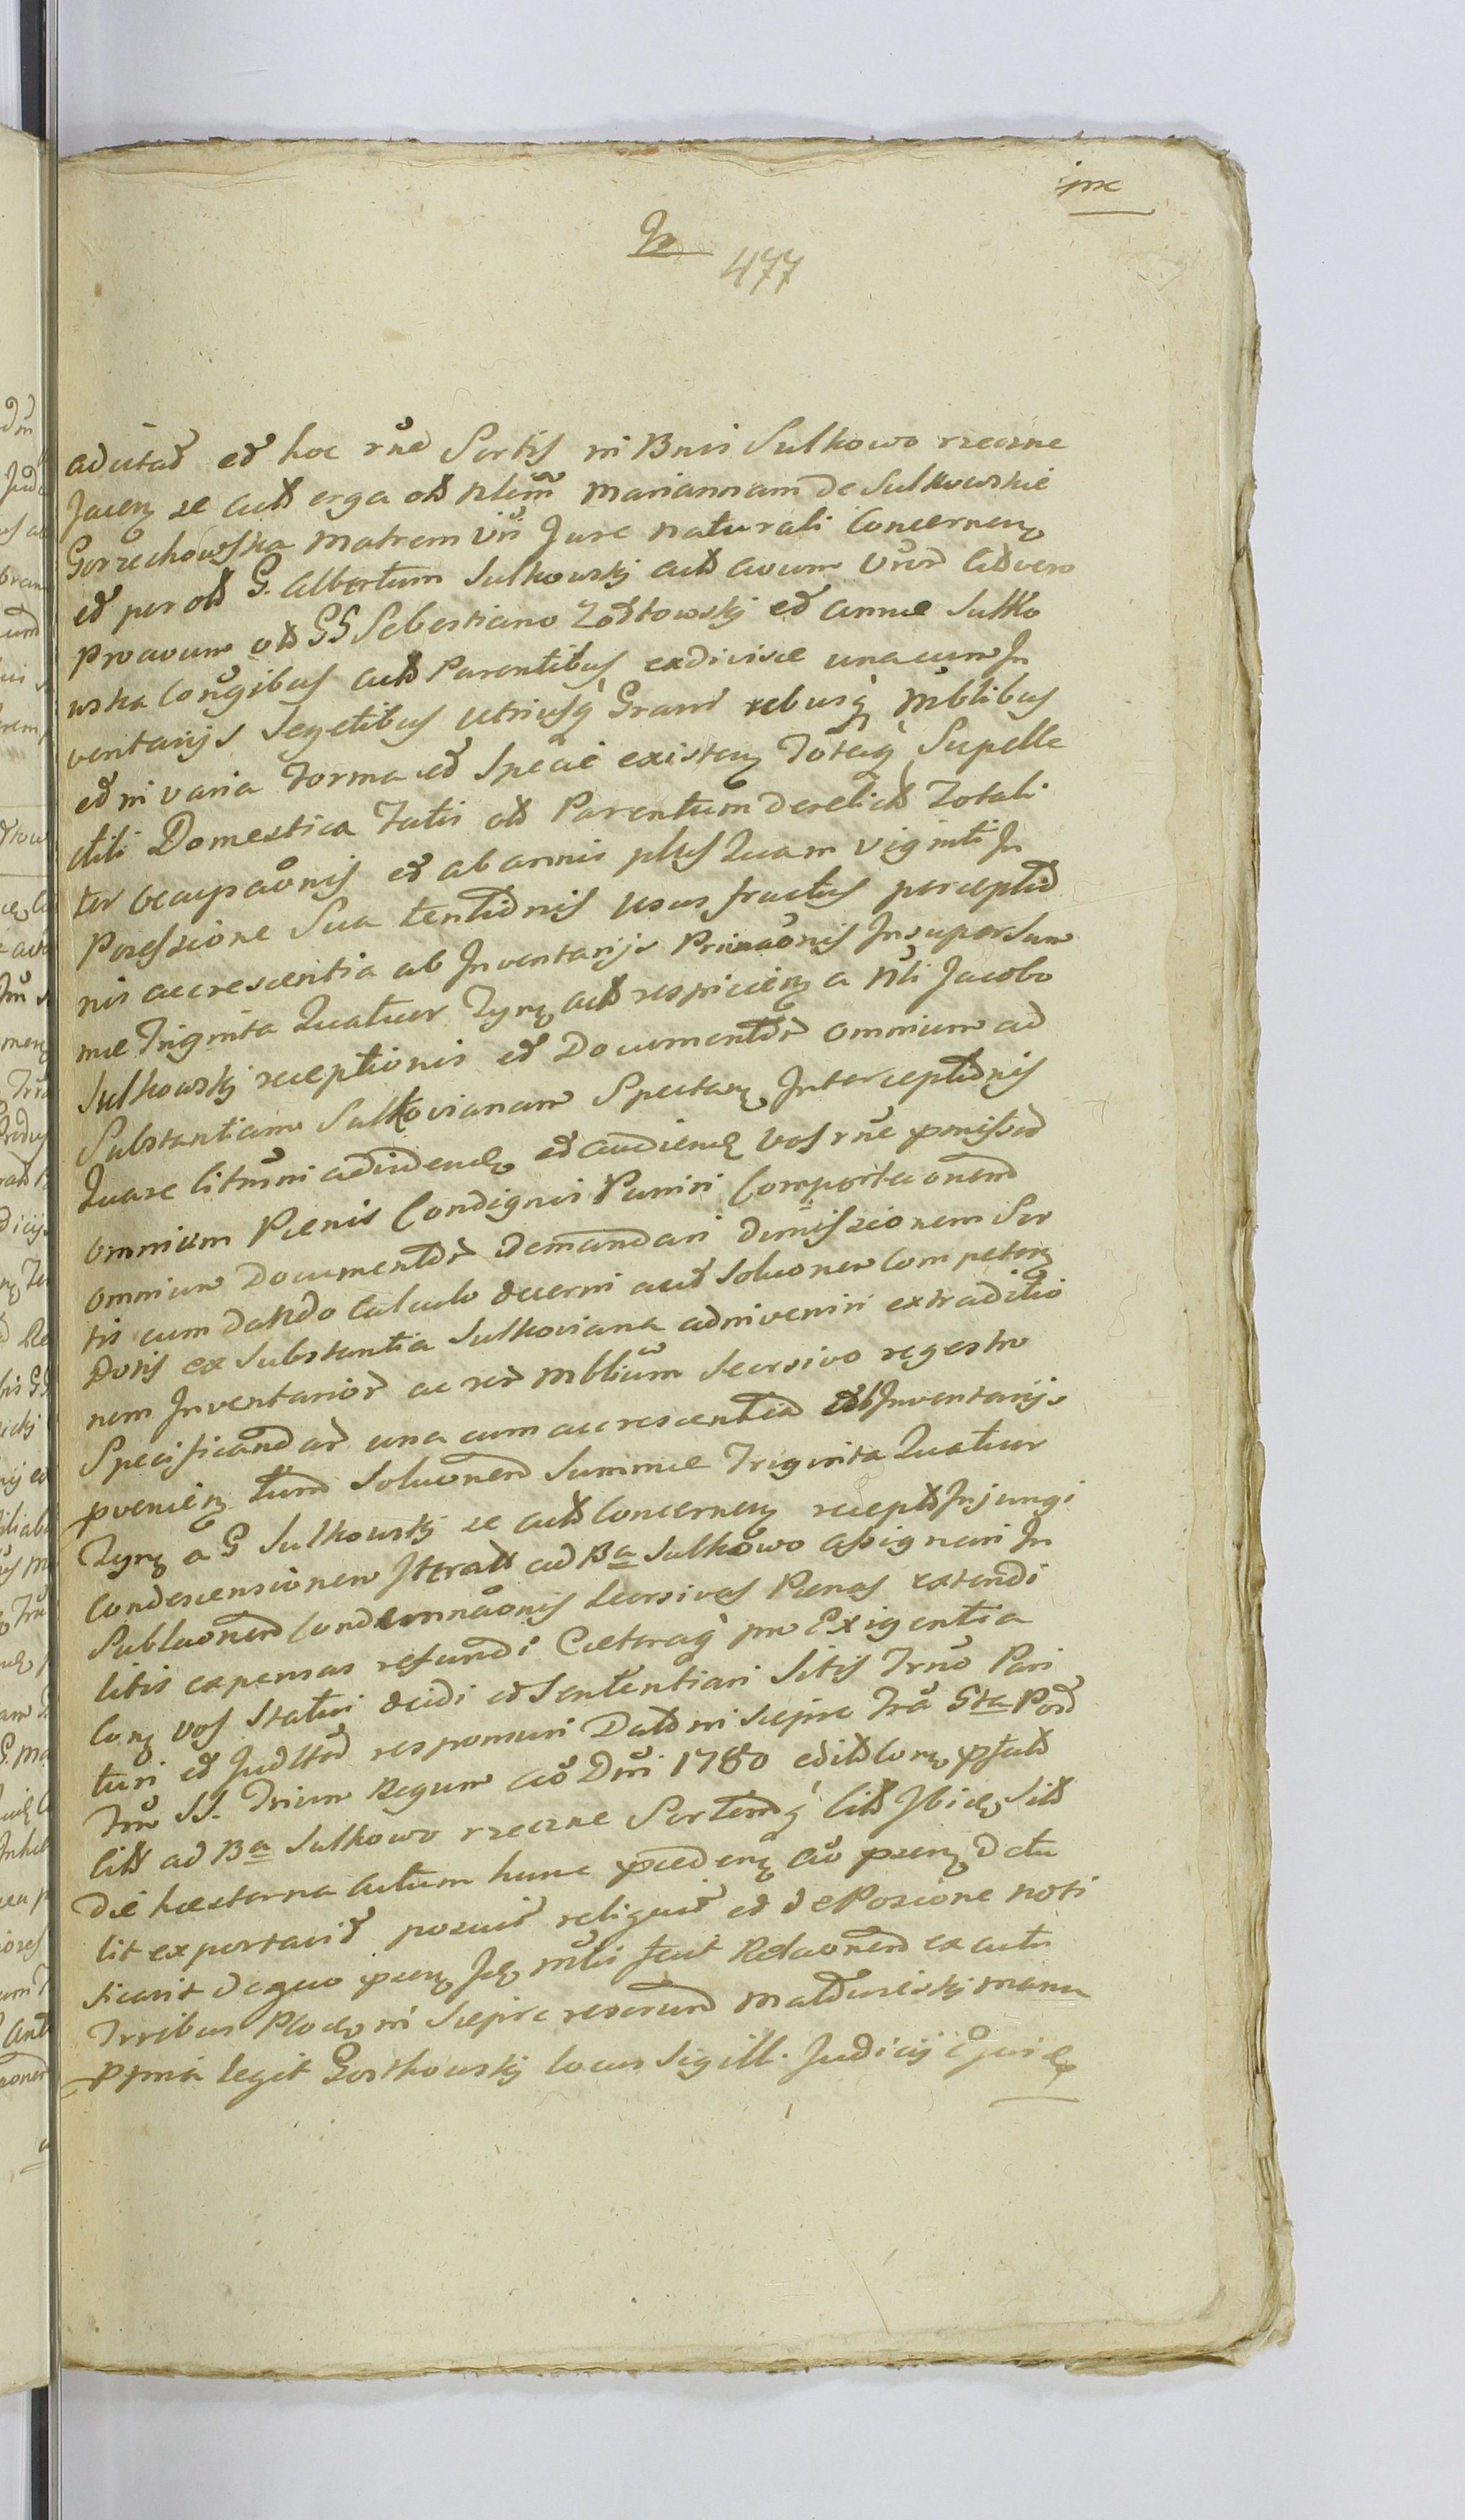 477
ad ictad et hoc rne Sortis in Bnis Sulkowo rzeczne
Jacen se actt erga ott Nlem Mariannam de Sulkowskie
Gorzechowska Matrem Vri Jure Naturali Concernen
et per ott G. Albertum Sulkowskj actt avum Vrur ad vero
proavum ott GG Sebestiano Zołtowskj et Annae Sulko
wska Congibus actt Parentibus exdivisae una cum In
ventarijs Segetibus utriusq Grani rebusq Mblibus
et in varia Forma et Specie existen Totaq Supelle
ctili Domestica Tatis ott Parentum derelictt Totali
ter occupaonis et ab annis plus Quam viginti In
Possessione Sua tentionis usus fructus perceptio
nis accrescentia ab Inventarijs Privaonis Insuper Sum
mae Triginta Quatuor Tynf actt respicien a Nli Jacobo
Sulkowskj receptionis et Documentor omnium ad
Substantiam Sulkovianam Spectan Interceptionis
Quare citmini ad videnda et audienda Vos rne pmissor
omnium Paenis Condignis Puniri Comportaonem
omnium Documentor Demandari dimissionem Sor
tis cum dando Calculo decerni aut Soluonem Competen
Dotis ex Substantia Sulkoviana adinveniri extraditio
nem Inventarior ac rer Mblium Seorsivo regestro
Specificandar una cum accrescentia ab Inventarijs
pvenien tum Soluonem Summae Triginta Quatuor
Tynf a G Sulkowskj se actt Concernen receptt Injungi
Condescensionem Iteratt ad Ba Sulkowo assignari In
Subluonem Condemnaonis Seorsivas Paenas extendi
litis expensas refundi Caeteraq pro Exigentia
Con Vos Statui decidi et Sententiari Sitis Trno Pari
turi et Judltor responsuri Datt in Siepre Fra Sta Post
Fm SS. Trium Regum Ao Dni 1780 edit Con pfatt
Citt ad Ba Sulkowo rzeczne Sortemq Citt Ibid Sitt
Die hesterna actum hunc pceden Ao psen detu
lit exportavit posuit reliquit et de Posione noti
ficavit de quo psen Jd Mlis fecit Relaonem ex actis
Trribus Ploc in Siepre reserund
ppria legit Gostkowskj locus Sigill. Judicij